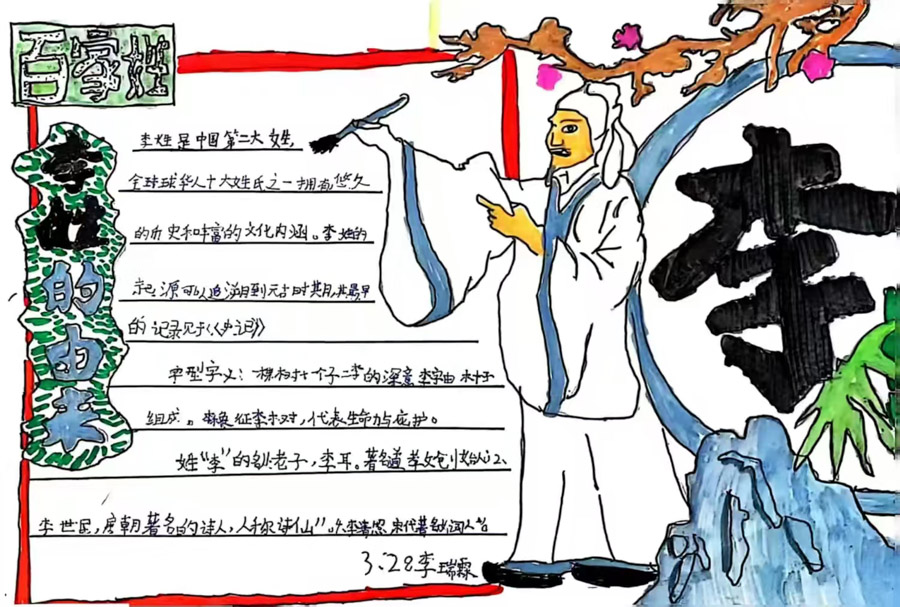 百家姓
李姓的由来
李
李姓是中国第二大姓,
全球华人十大姓氏之一拥有悠久
的历史和丰富的文化内涵。李姓的
起源可以追溯到元古时期,其最早
的记录见于《史记》
字型字义:一棵树十个子二李的深意李字由木十子
组成。象征李木对,代表生命力与庇护。
姓"李"的 老子,李耳。著名
李世民,唐朝著名的诗人,人称诗仙"
李清照 宋代著名词人
3.28李瑞霖